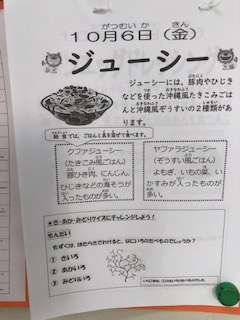 がつむいか きん
10月6日(金)
ジューシー
ジューシーには、豚肉やひじき
などを使った沖縄風たきこみごは
んと沖縄風ぞうすいの2種類があ
ります。
給食では、ごはんと具を混ぜて食べます。
クファジューシー
(たきこみ風ごはん)
豚ひき肉、にんじん、
ひじきなどの海そうが
入ったものが多い。
ヤファラジューシー
(ぞうすい風ごはん)
よもぎ、いもの葉、い
かすみが入ったものが
多い。
★き・あか・みどりクイズにチャレンジしよう!
もんだい
もずくは、はたらきでわけると、なにいろのたべものでしょうか?
① きいろ
② あかいろ
③ みどりいろ